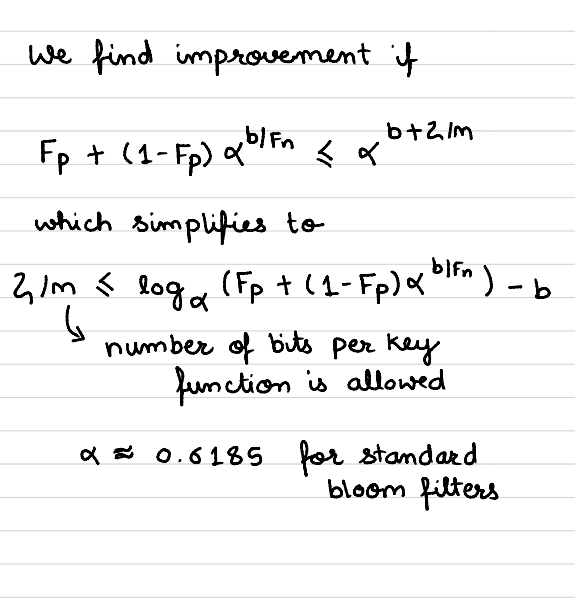 We find improvement if
Fp + (1-Fp) α^{b/Fn} ⩽ α^{b+ζ/m}
which simplifies to
ζ/m ⩽ log_α (Fp + (1-Fp)α^{b/Fn}) - b
number of bits per key
function is allowed
α ≈ 0.6185 for standard
bloom filters